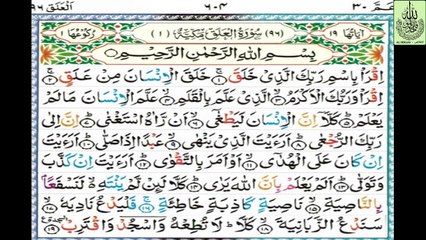 عَمَّ ٣٠ ٦٠٤ الْعَلَق ٩٦
اٰيَاتُهَا ١٩ (٩٦) سُوْرَةُ الْعَلَقِ مَكِّيَّةٌ (١) رُكُوْعُهَا ١
بِسْمِ اللّٰهِ الرَّحْمٰنِ الرَّحِيْمِ
اِقْرَاْ بِاسْمِ رَبِّكَ الَّذِيْ خَلَقَ ۝١ خَلَقَ الْاِنْسَانَ مِنْ عَلَقٍ ۝٢
اِقْرَاْ وَرَبُّكَ الْاَكْرَمُ ۝٣ الَّذِيْ عَلَّمَ بِالْقَلَمِ ۝٤ عَلَّمَ الْاِنْسَانَ مَا لَمْ
يَعْلَمْ ۝٥ كَلَّاۤ اِنَّ الْاِنْسَانَ لَيَطْغٰۤى ۝٦ اَنْ رَّاٰهُ اسْتَغْنٰى ۝٧ اِنَّ اِلٰى
رَبِّكَ الرُّجْعٰى ۝٨ اَرَءَيْتَ الَّذِيْ يَنْهٰى ۝٩ عَبْدًا اِذَا صَلّٰى ۝١٠ اَرَءَيْتَ
اِنْ كَانَ عَلَى الْهُدٰۤى ۝١١ اَوْ اَمَرَ بِالتَّقْوٰى ۝١٢ اَرَءَيْتَ اِنْ كَذَّبَ
وَتَوَلّٰى ۝١٣ اَلَمْ يَعْلَمْ بِاَنَّ اللّٰهَ يَرٰى ۝١٤ كَلَّا لَئِنْ لَّمْ يَنْتَهِ لَنَسْفَعًۢا
بِالنَّاصِيَةِ ۝١٥ نَاصِيَةٍ كَاذِبَةٍ خَاطِئَةٍ ۝١٦ فَلْيَدْعُ نَادِيَهٗ ۝١٧
سَنَدْعُ الزَّبَانِيَةَ ۝١٨ كَلَّا لَا تُطِعْهُ وَاسْجُدْ وَاقْتَرِبْ ۝١٩